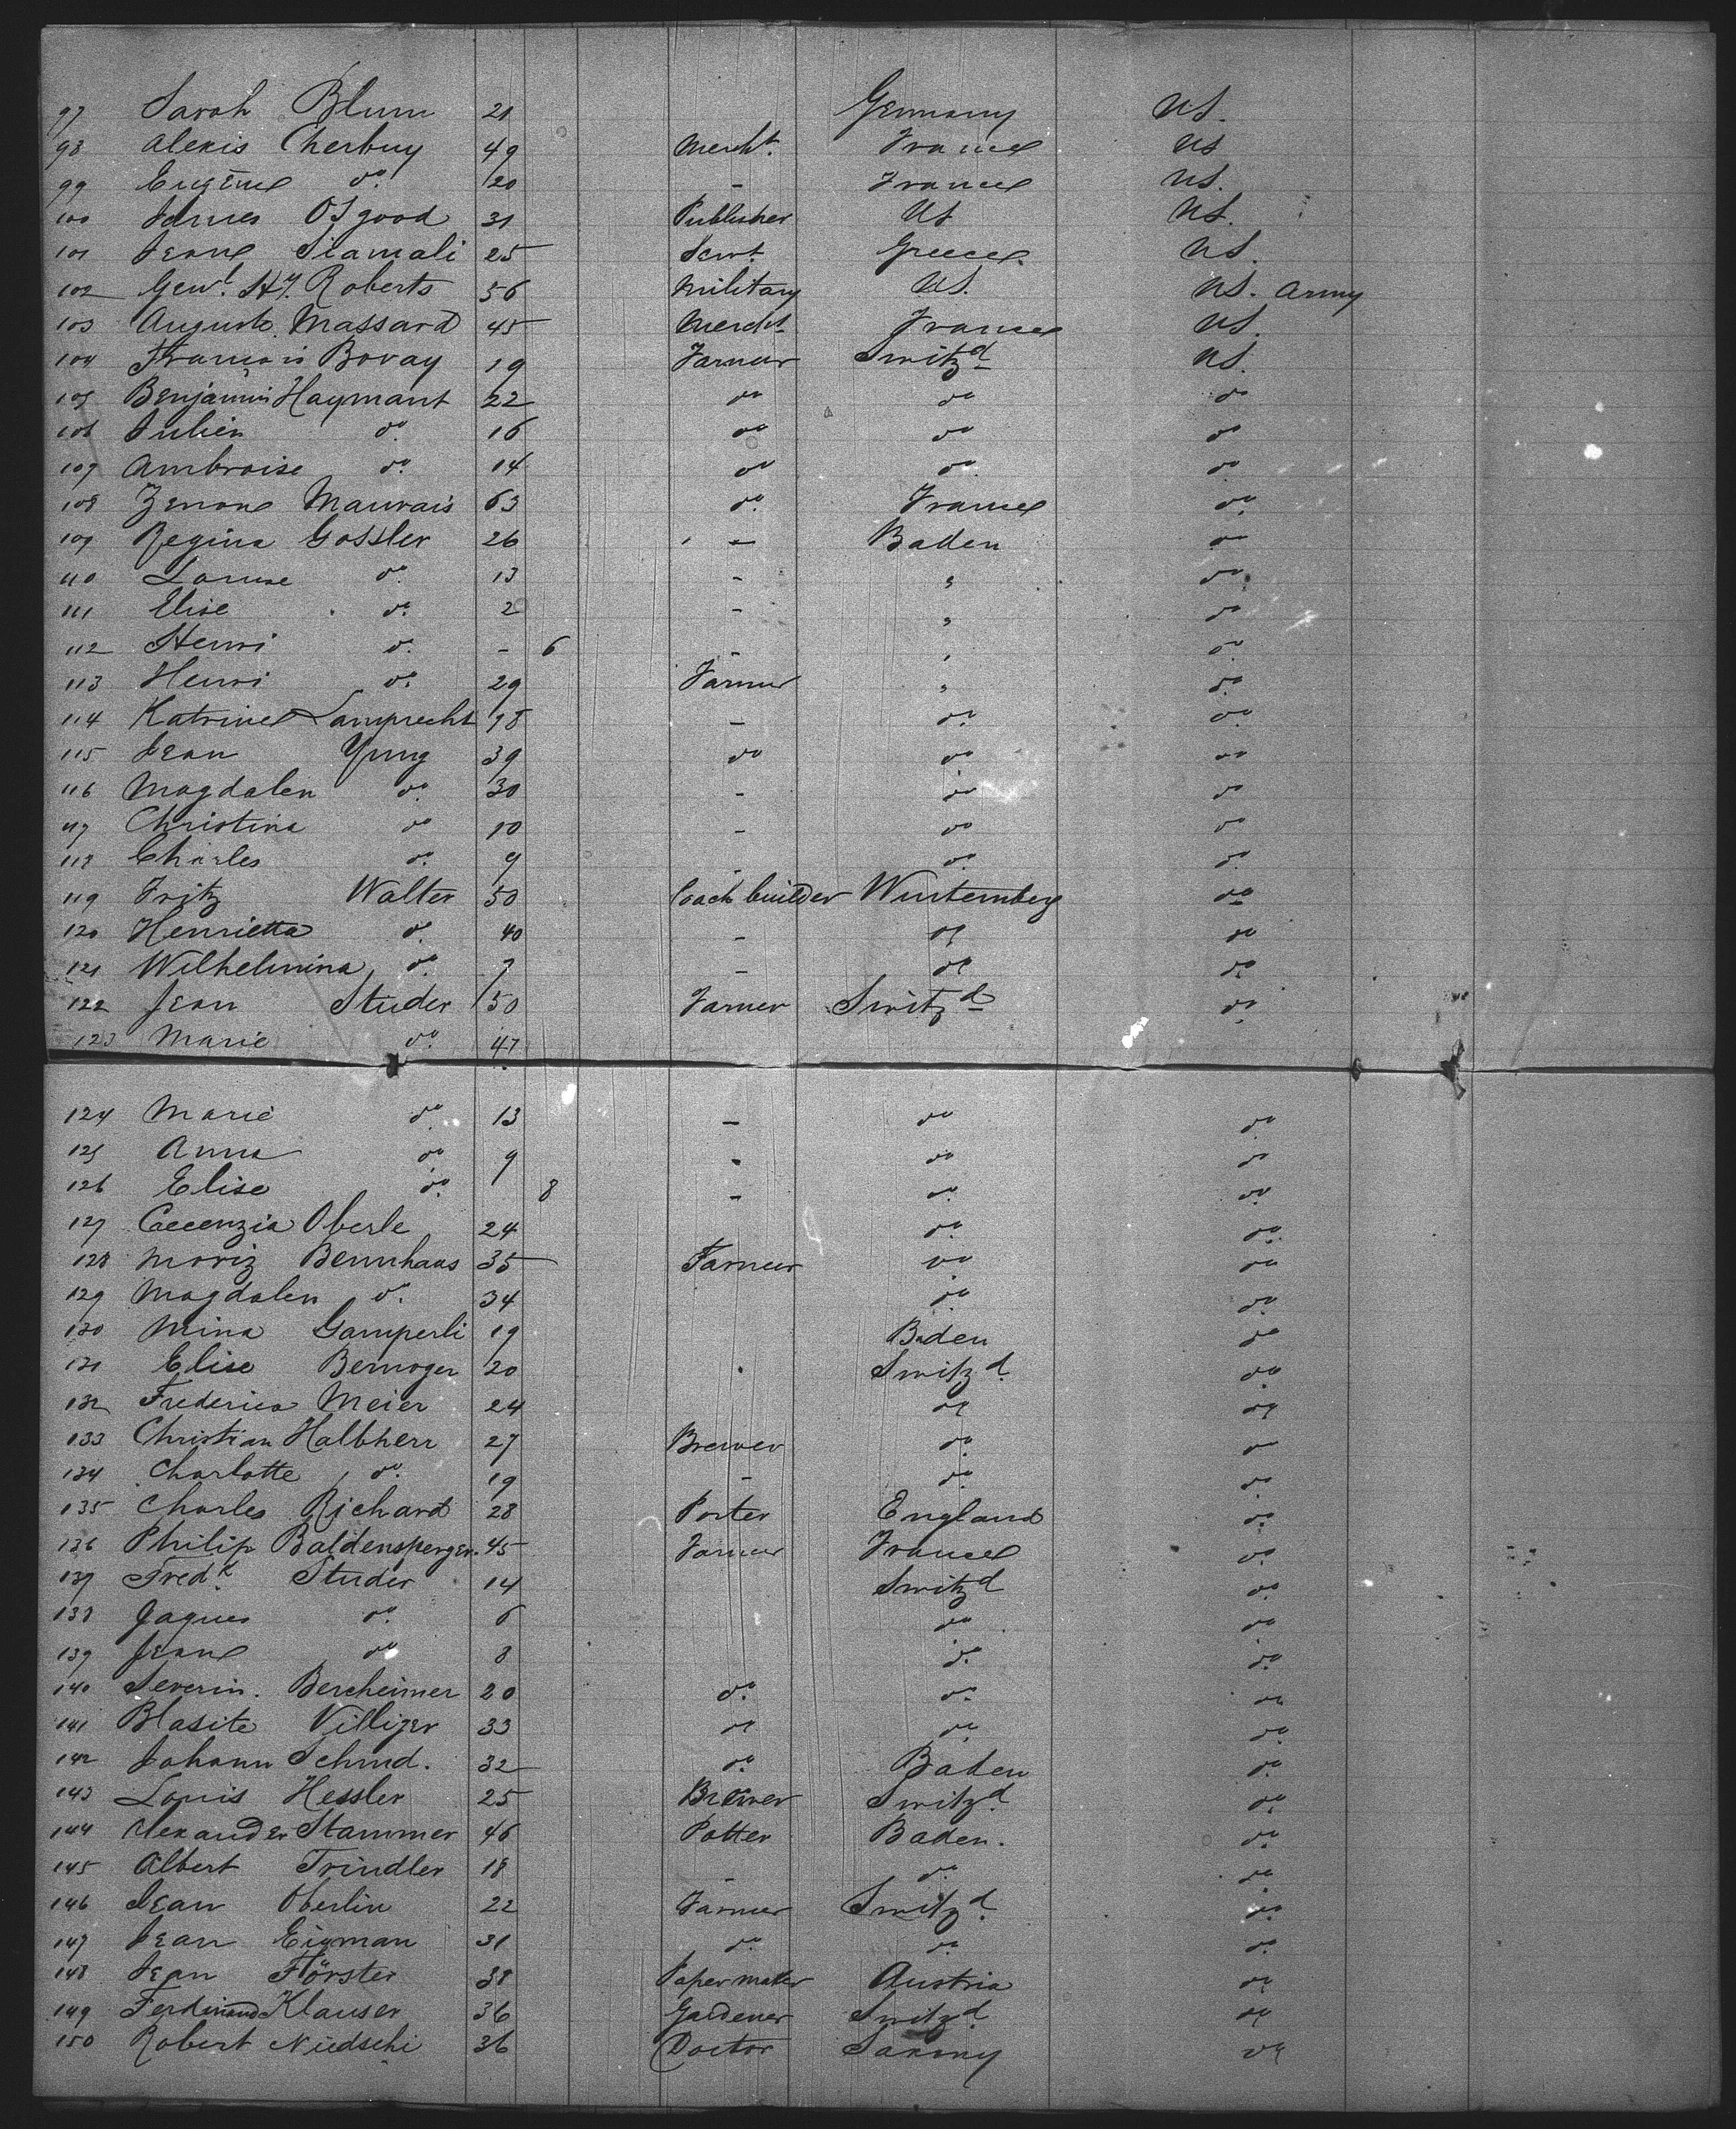 97 Sarah Blum 21 Germany US.
98 Alexis Cherbuy 49 Mercht. France US
99 Eugène do. 20 - France US.
100 James Osgood 31 Publisher US US.
101 Jeane Siamali 25 Servt. Greece. US.
102 Genl. Hy. Roberts 56 Military US. US. Army
103 Auguste Massard 45 Mercht France US.
104 François Bovay 19 Farmer Switzd US.
105 Benjamin Haymant 22 do do do
106 Julien do. 16 do do do
107 Ambroise do. 14 do do. do
108 Zenone Mauvais 63 do. France do.
109 Regina Gossler 26 - Baden do
110 Louise do. 13 - " do
111 Elise do. 2 - " do
112 Henri do. - 6 - " do.
113 Henri do. 29 Farmer " do.
114 Katrine Lamprecht 18 - do. do.
115 Jean Yung 39 do do do
116 Magdalen do. 30 - do do
117 Christina do 10 - do do
118 Charles do. 9 - do. do.
119 Fritz Walter 50 Coach builder Wurtemberg do
120 Henrietta do. 40 - do do
121 Wilhelmina do. 7 - do do.
122 Jean Studer 50 Farmer Switzd do.
123 Marie do. 47
124 Marie do. 13 - do do.
125 Anna do 9 - do do
126 Elise do. 8 - do. do.
127 Crecenzia Oberle 24 do. do.
128 Moriz Bennhaus 35 Farmer do do
129 Magdalen do. 34 do. do.
130 Mina Gamperli 19 Baden do
131 Elise Bernoger 20 Switzd. do.
132 Frederica Meier 24 do do
133 Christian Halbherr 27 Brewer do. do
134 Charlotte do. 19 - do. do.
135 Charles Richard 28 Porter England do.
136 Philip Baldensperger. 45 Farmer France do.
137 Fredk. Studer 14 Switzd do.
138 Jaques do. 6 do do.
139 Jeane do 8 do. do.
140 Severin. Bercheimer 20 do. do. do
141 Blasite Villiger 33 do do. do.
142 Johann Schmd. 32 do. Baden do.
143 Louis Hessler 25 Brewer Switzd. do.
144 Alexander Stammer 46 Potter Baden. do.
145 Albert Trindler 18 - do. do.
146 Jean Oberlin 22 Farmer Switzd. do.
147 Jean Eigman 31 do. do. do.
148 Jean Förster 38 Paper maker Austria do
149 Ferdinand Klauser 36 Gardener Switzd. do
150 Robert Nüdschi 36 Doctor Saxony do